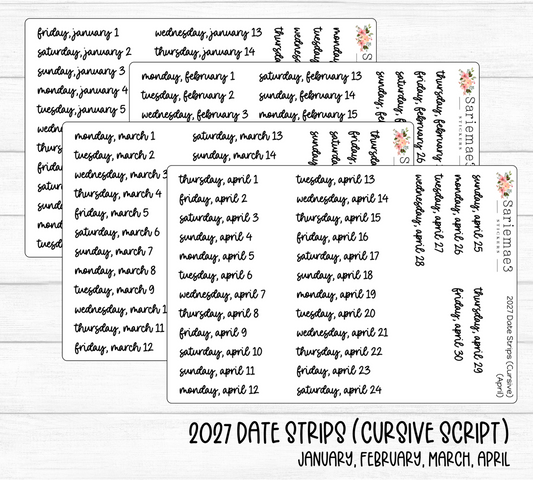 friday, january 1
saturday, january 2
sunday, january 3
monday, january 4
tuesday, january 5
wednesday, january 13
thursday, january 14
monday, february 1
tuesday, february 2
wednesday, february 3
saturday, february 13
sunday, february 14
monday, february 15
thursday, february
friday, february 26
saturday, feb
sunday, feb
Sariemae3
STICKERS
monday, march 1
tuesday, march 2
wednesday, march 3
thursday, march 4
friday, march 5
saturday, march 6
sunday, march 7
monday, march 8
tuesday, march 9
wednesday, march 1
thursday, march 11
friday, march 12
saturday, march 13
sunday, march 14
thursday, april 1
friday, april 2
saturday, april 3
sunday, april 4
monday, april 5
tuesday, april 6
wednesday, april 7
thursday, april 8
friday, april 9
saturday, april 10
sunday, april 11
monday, april 12
tuesday, april 13
wednesday, april 14
thursday, april 15
friday, april 16
saturday, april 17
sunday, april 18
monday, april 19
tuesday, april 20
wednesday, april 21
thursday, april 22
friday, april 23
saturday, april 24
sunday, april 25
monday, april 26
tuesday, april 27
wednesday, april 28
thursday, april 29
friday, april 30
Sariemae3
STICKERS
2027 Date Strips (Cursive)
(April)
2027 DATE STRIPS (CURSIVE SCRIPT)
JANUARY, FEBRUARY, MARCH, APRIL